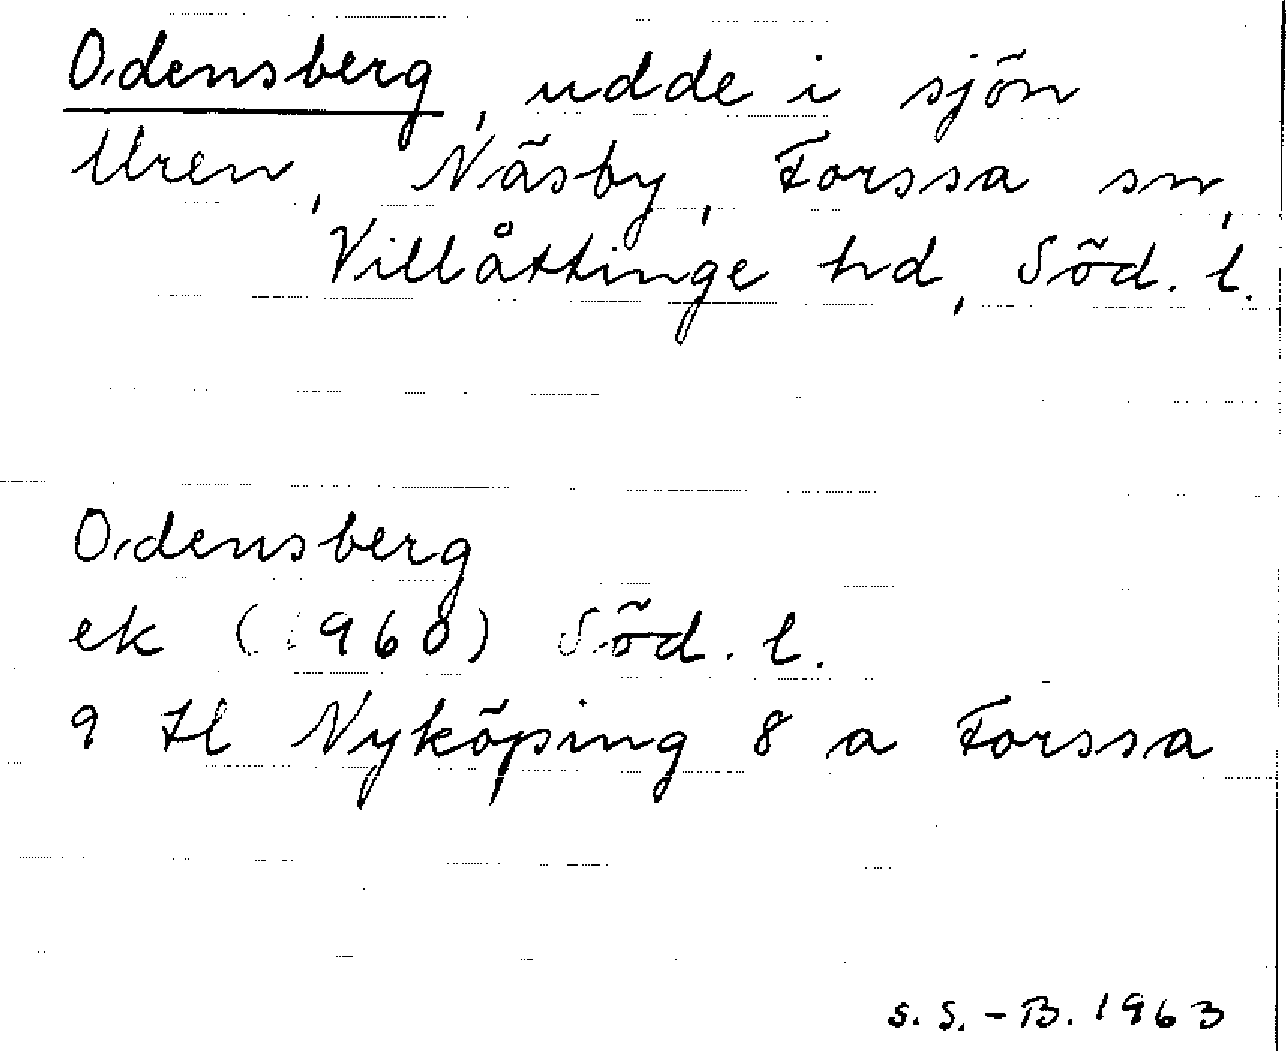 Odensberg, udde i sjön
Uren, Näsby, Forssa sn,
Villåttinge hd, Söd. l.
Odensberg
ek (1960) Söd. l.
9 H l Nyköping 8 a Forssa
S. S.-B. 1963